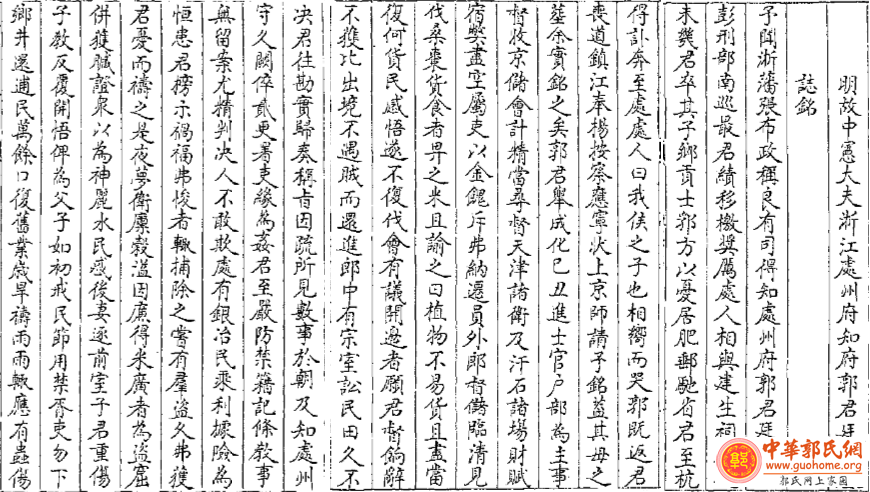 明故中憲大夫浙江處州府知府郭君廷
誌銘
予聞浙藩張布政稱良有司得知處州府郭君廷
彭刑部南巡最君績移檄奬厲處人相與建生祠
未幾君卒其子鄉貢士郭方以憂居肥郵馳省君至杭
得訃奔至處處人曰我侯之子也相嚮而哭郭旣返君
喪道鎮江奉楊按察應寧狀上京師請予銘蓋其母之
墓余實銘之矣郭君舉成化己丑進士官户部為主事
督收京儲會計精當尋督天津諸衛及汗石諸塲財賦
宿弊盡空屬吏以金餽斥弗納遷員外郎督儲臨清見
伐桑棗貨食者畀之米且諭之曰植物不易貨且盡當
復何貨民感悟遂不復伐會有議開邊者願君督餉辭
不獲比出境不遇賊而還進郎中有宗室訟民田久不
决君往勘實歸奏稱旨因疏所見數事於朝及知處州
守久闕倅貳更署吏緣為姦君至嚴防禁籍記條敎事
無留案尤精判决人不敢欺處有銀冶民乘利據險為
恒患君榜示禍福弗悛者輒捕除之嘗有羣盜久弗獲
君憂而禱之是夜夢衡廪榖溢因廉得米廣者為盜窟
併獲贜證衆以為神麗水民惑後妻逐前室子君重傷
子敎反覆開悟俾為父子如初戒民節用禁胥吏勿下
鄉井還逋民萬餘口復舊業歲旱禱雨雨輒應有蟲傷
中華郭氏網
www.guohome.org
郭氏网上家园